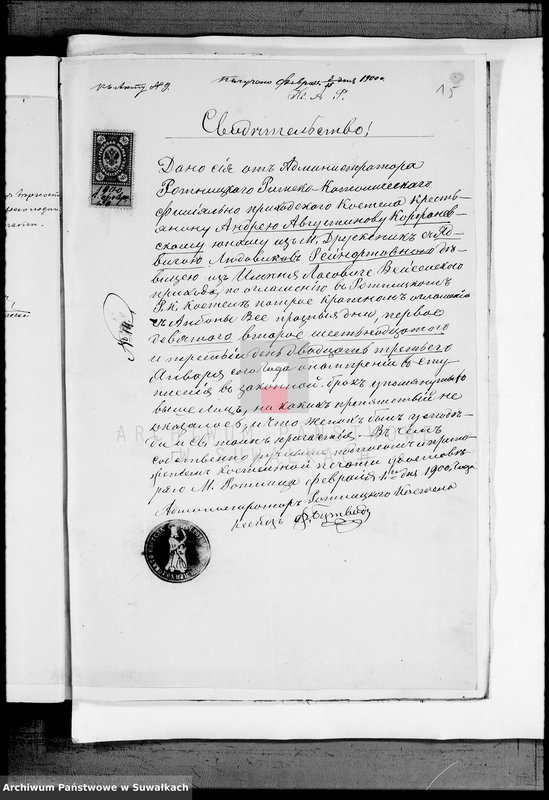 къ Акту № 9.
получено февраля 1900 г.
15
Свидѣтельство!
Дано сіе отъ Администратора
Ротницкаго Римско-Католическаго
филіально приходскаго Костела кресть-
янину Андрею Августинову Корфонов-
скому юношѣ изъ М. Друскеникъ съ Яд-
вигою Людовиковой Рейнгортовною дѣ-
вицею изъ Имѣнія Ласовиче Вейсейскаго
прихода, по оглашеніи въ Ротницкомъ
Р. К. Костелѣ по трое кратномъ оглашеніи
съ Амбоны все праздные дни, первое
девятаго второе шестнадцатаго
и третіе день двадцать третьяго
Января сего года о намѣреніи всту-
пленія въ законной бракъ упомянутыхъ
выше лицъ, ни какихъ препятствій не
оказалось, и что женихъ былъ у исповѣ-
ди и св. таинъ причастія. Въ чемъ
собственно ручнымъ подписомъ и прило-
женіемъ костельной печати удостовѣ-
ряю М. Ротница февраля 1го дня 1900 года
Администраторъ Ротницкаго Костела
Ксендзъ
Archiwum Państwowe w Suwałkach